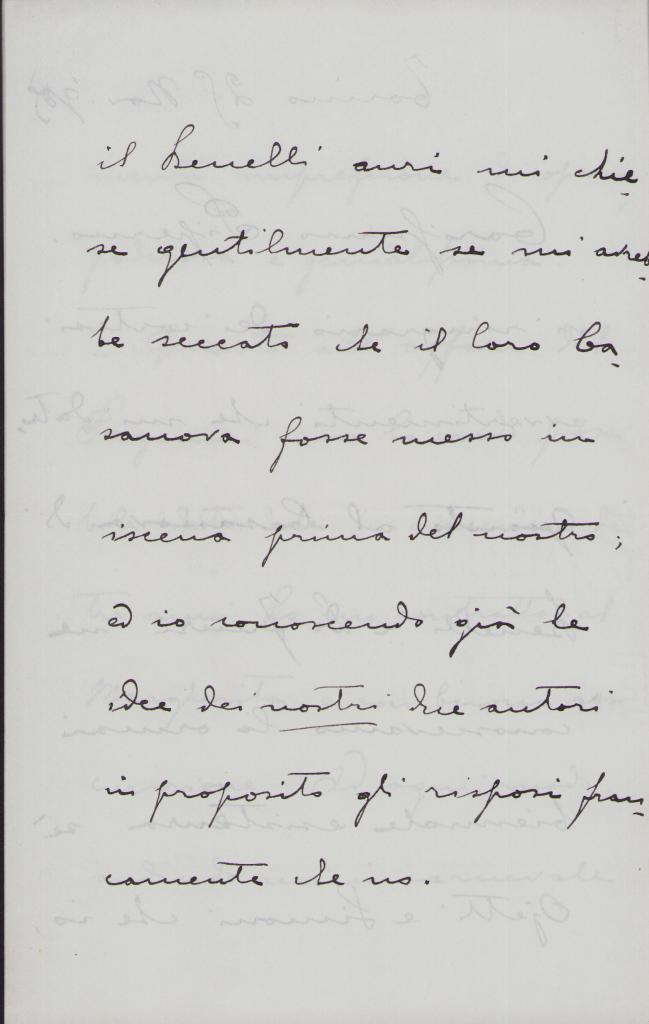 il Benelli anzi mi chie-
se gentilmente se mi avreb-
be seccato che il loro Ca-
sanova fosse messo in
iscena prima del nostro;
ed io conoscendo già le
idee dei nostri due autori
in proposito gli risposi fran-
camente che no.